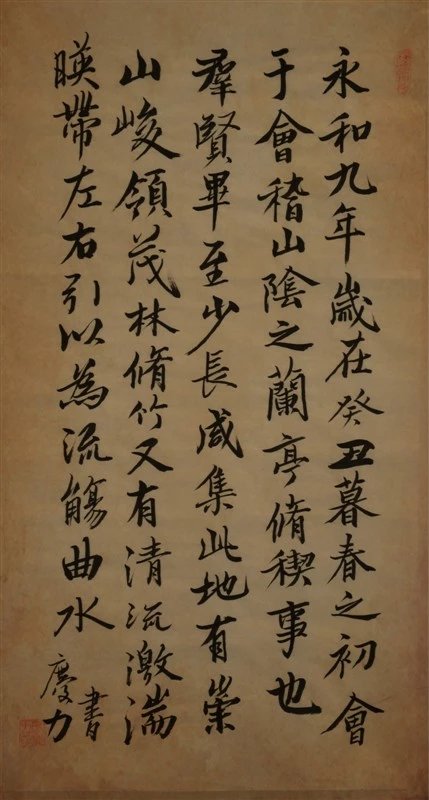 永和九年歲在癸丑暮春之初會
于會稽山陰之蘭亭脩稧事也
羣賢畢至少長咸集此地有崇
山峻領茂林脩竹又有清流激湍
暎帶左右引以為流觴曲水
慶力
書